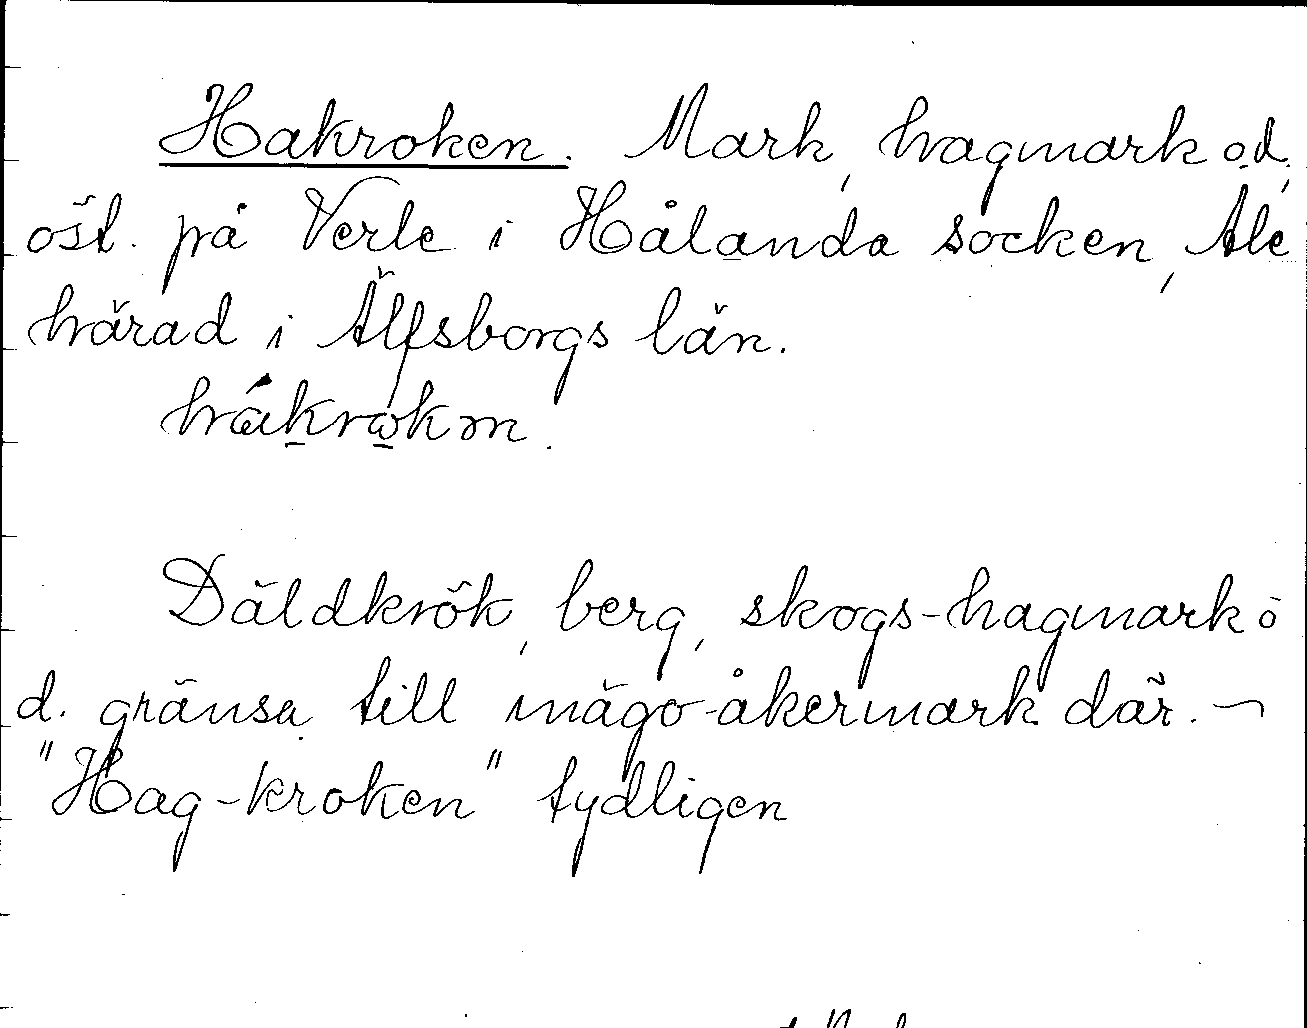 Hakroken. Mark, hagmark o.d.,
öst. på Verle i Hålanda socken, Ale
härad i Älfsborgs län.
Däldkrök, berg, skogs-hagmark o
d. gränsa till inägo-åkermark där. ¬
"Hag-kroken" tydligen